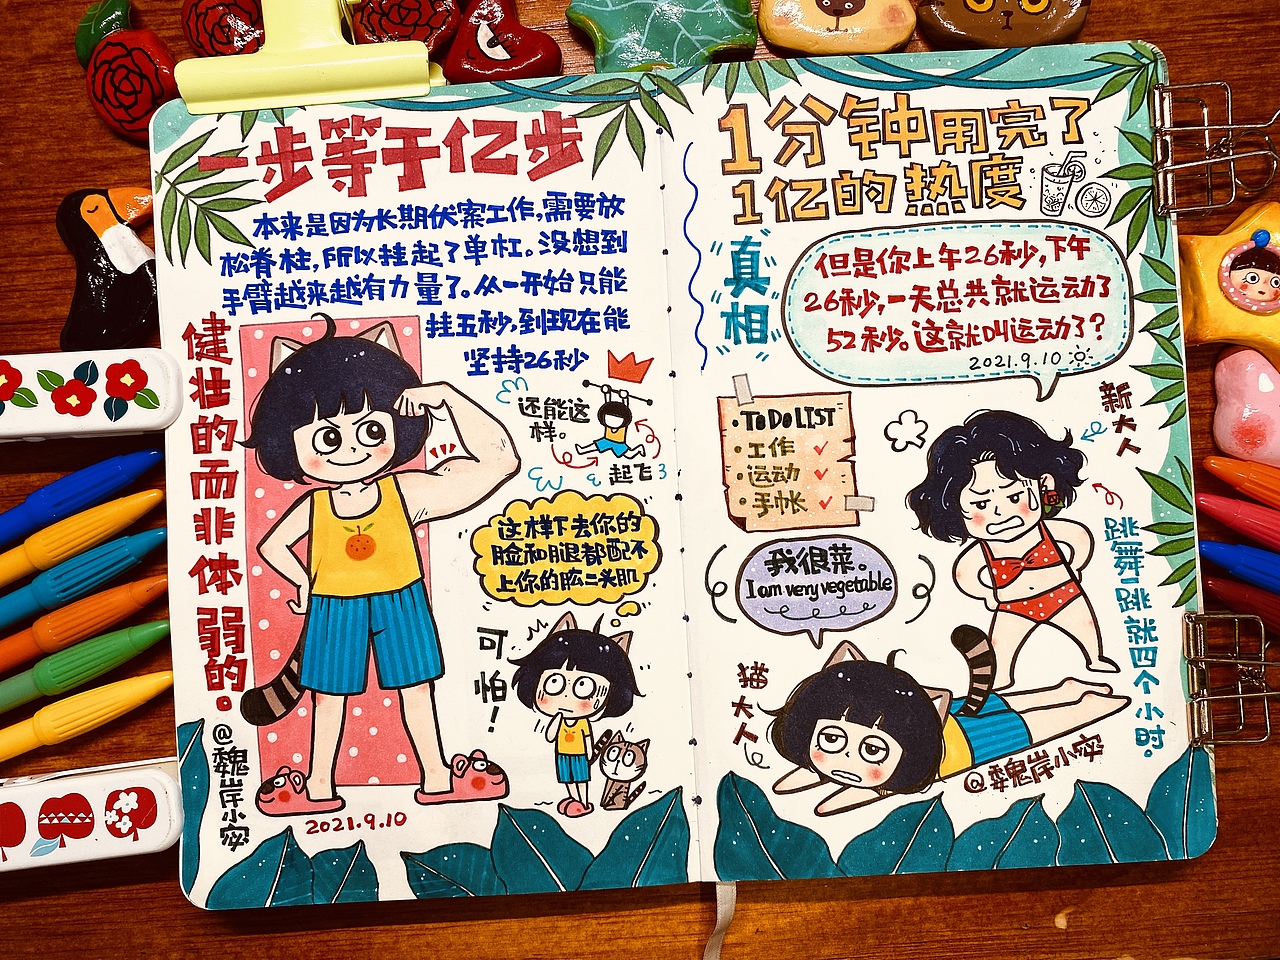 一步等于亿步
本来是因为长期伏案工作,需要放
松脊柱,所以挂起了单杠。没想到
手臂越来越有力量了。从一开始只能
挂五秒,到现在能
坚持26秒
健壮的而非体弱的。
@魏岸小宓
还能这
样。
起飞
这样下去你的
脸和腿都配不
上你的肱二头肌
可怕!
2021.9.10
1分钟用完了
1亿的热度
真相
但是你上午26秒,下午
26秒,一天总共就运动了
52秒。这就叫运动了?
2021.9.10
TO DO LIST
·工作 ✓
·运动 ✓
·手帐 ✓
新大人
跳舞一跳就四个小时。
我很菜。
I am very vegetable
猫大人
@魏岸小宓